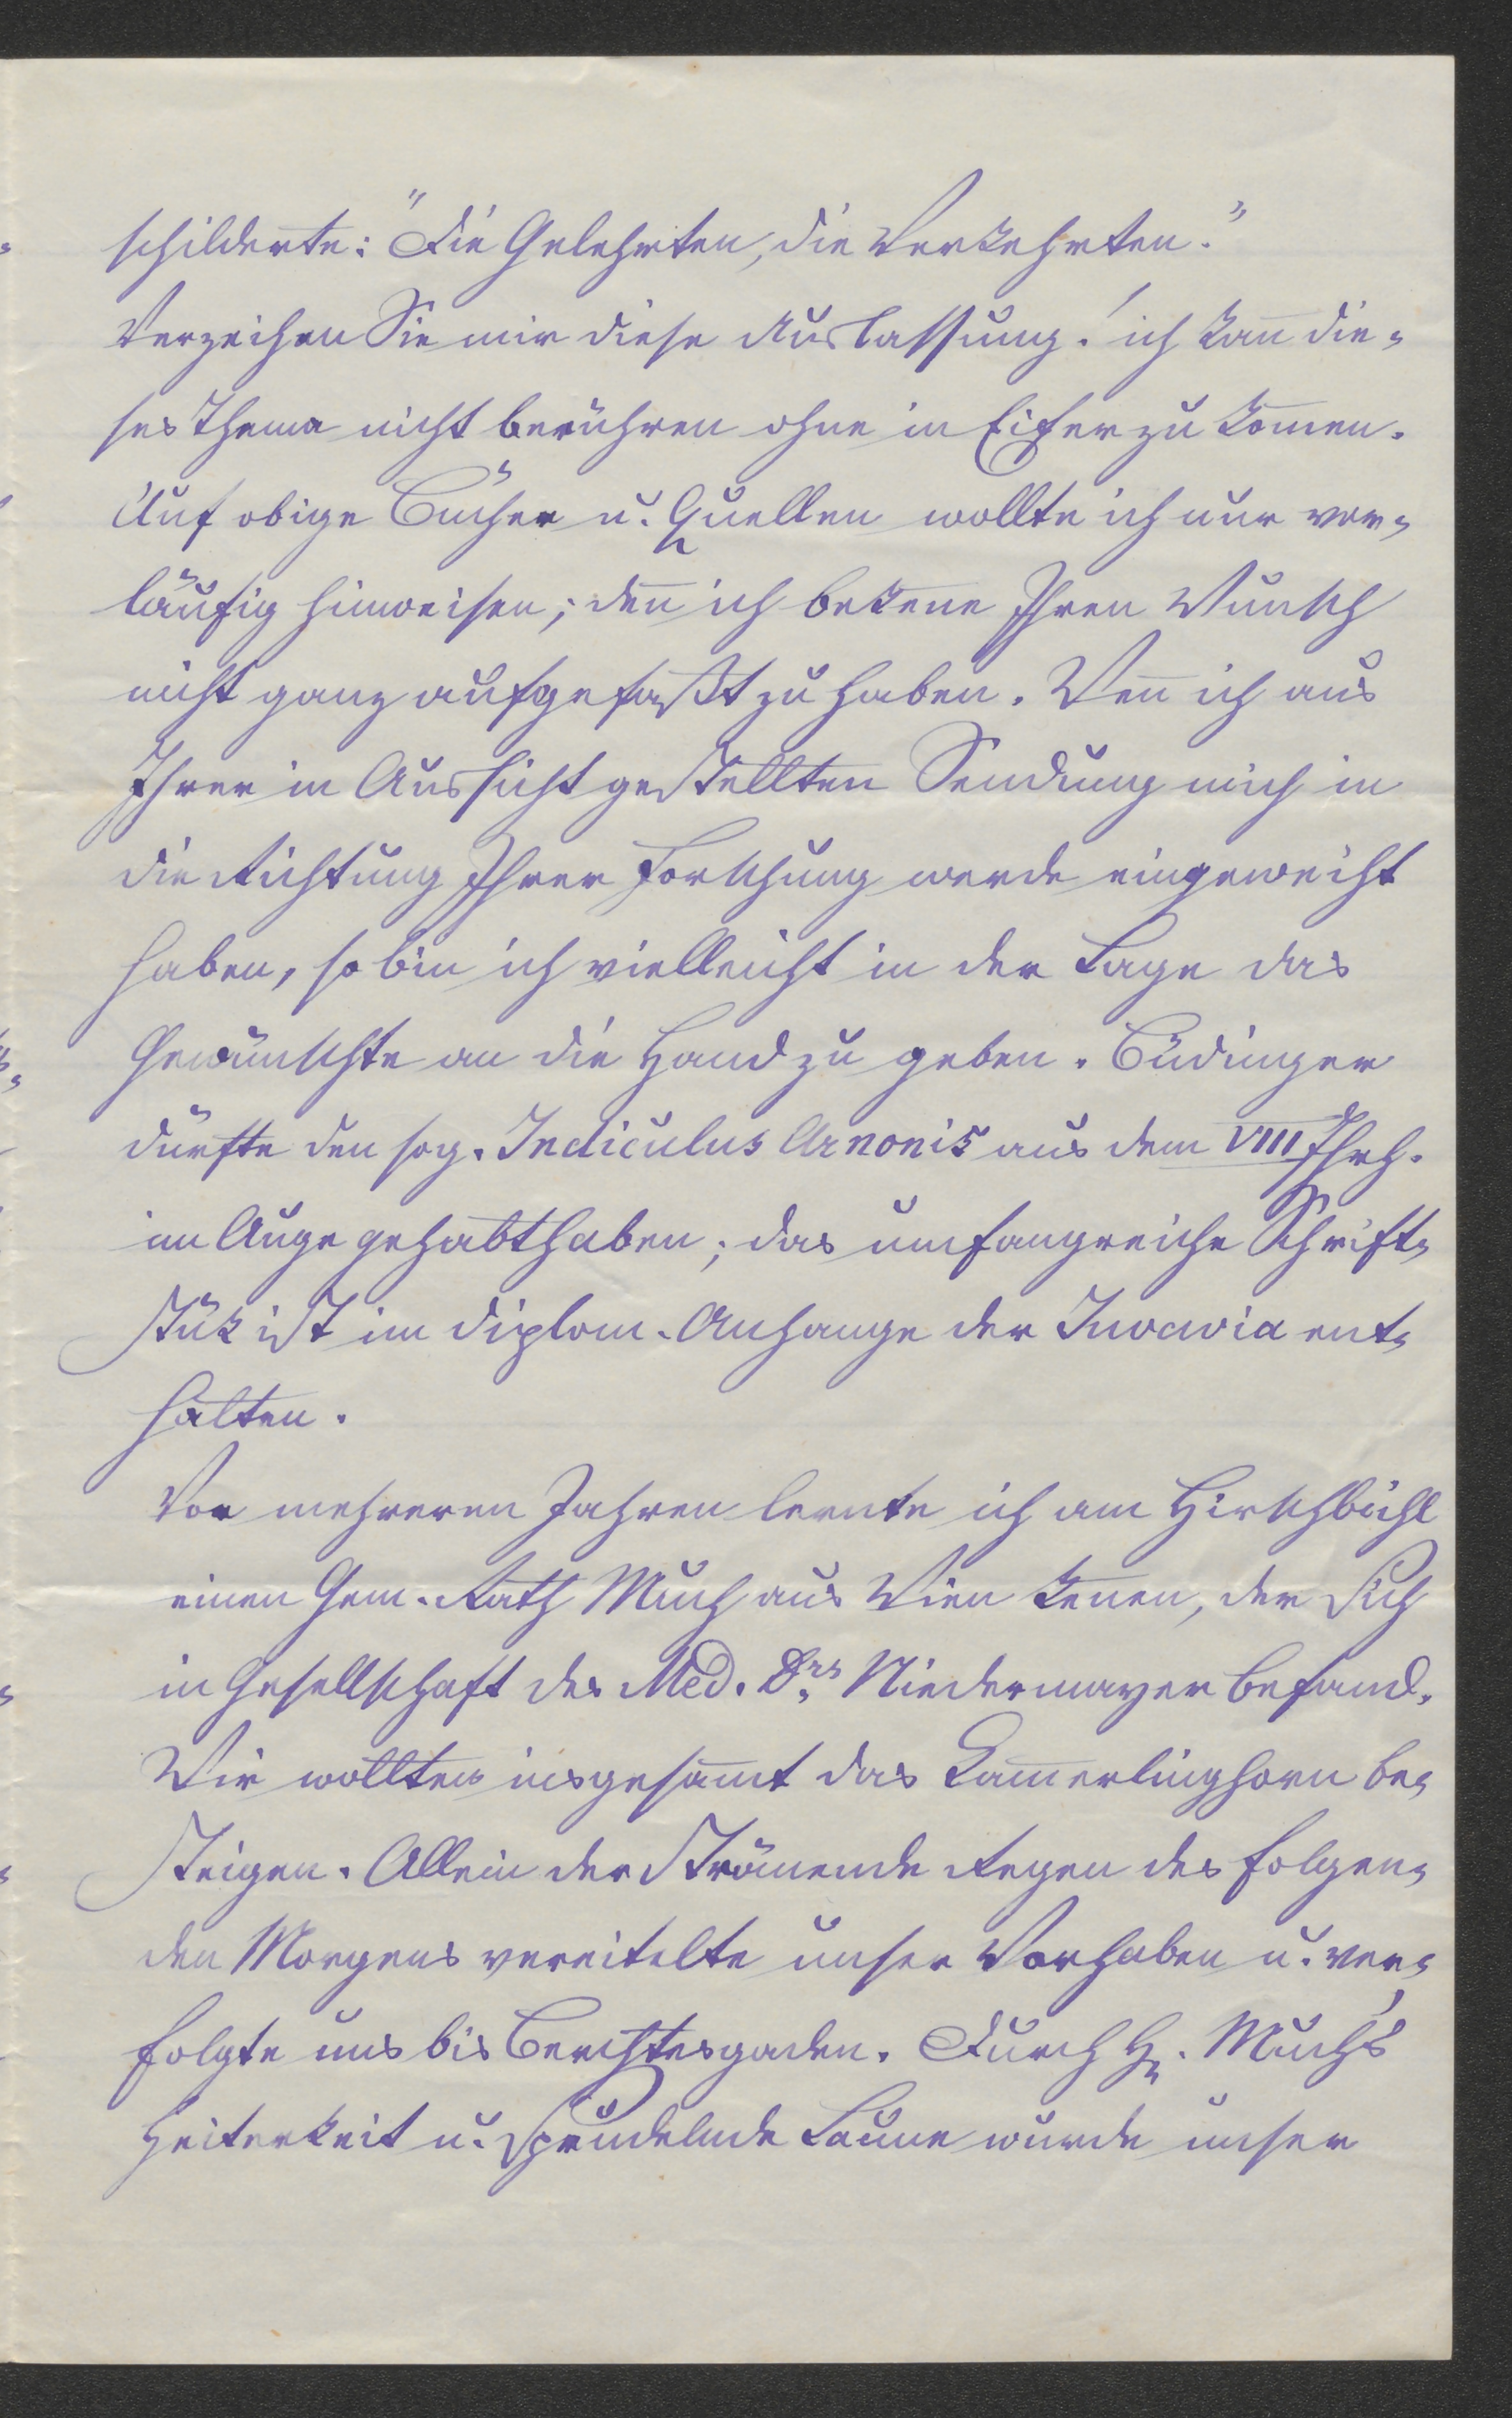 schilderte: "Die Gelehrten, die Verkehrten."
Verzeihen Sie mir diese Auslassung! ich kan̄ die=
ses Thema nicht berühren ohne in Eifer zu kom̄en.
Auf obige Bücher u. Quellen wollte ich nur vor=
läufig hinweisen; den̄ ich beken̄e Ihren Wunsch
nicht ganz aufgefaßt zu haben. Wen̄ ich aus
Ihrer in Aussicht gestellten Sendung mich in
die Richtung Ihrer Forschung werde eingeweiht
haben, so bin ich vielleicht in der Lage das
Gewünschte an die Hand zu geben. Büdinger
dürfte den sog. Indiculus Arnonis aus dem VIII Jhrh.
im Auge gehabt haben; das umfangreiche Schrift=
stük ist im diplom. Anhange der Juvavia ent=
halten.
Vor mehreren Jahren lernte ich am Hirschbühl
einen Gem. Rath Much aus Wien ken̄en, der sich
in Gesellschaft des Med. Drs Niedermayer befand.
Wir wollten insgesam̄t das Kam̄erlinghorn be=
steigen. Allein der strömende Regen des folgen=
den Morgens vereitelte unser Vorhaben u. ver=
folgte uns bis Berchtesgaden. Durch H. Much's
Heiterkeit u. sprudelnde Laune wurde unser